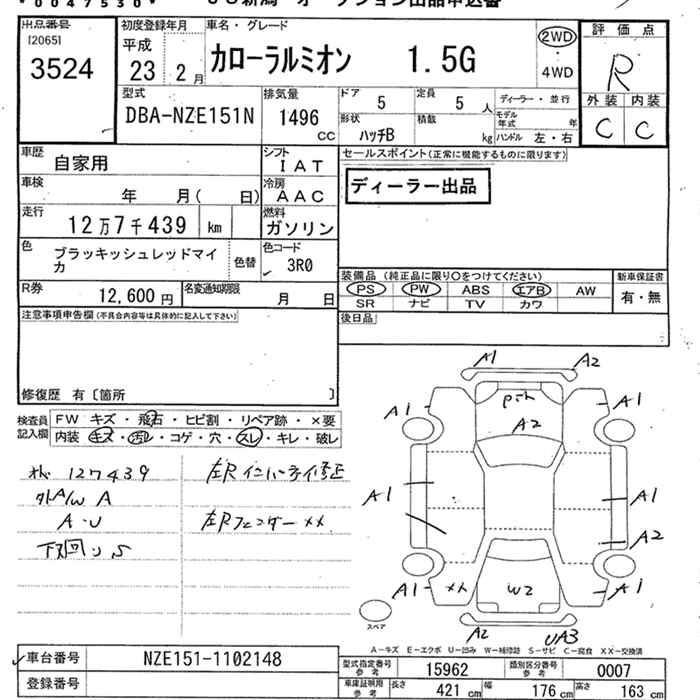 *0047530*
出品番号
[2065]
3524
初度登録年月
平成
23 2月
車名・グレード
カローラルミオン 1.5G
2WD
・
4WD
評価点
R
外装 内装
C C
型式
DBA-NZE151N
排気量
1496
CC
ドア 5
定員 5 人
ディーラー・並行
モデル年式 年
形状 ハッチB
積載 kg
ハンドル 左・右
車歴 自家用
シフト IAT
車検 年 月( 日)
冷房 AAC
走行 12万7千439 km
燃料 ガソリン
セールスポイント(正常に機能するものに限ります)
ディーラー出品
色 ブラッキッシュレッドマイカ
色替
色コード
3R0
R券 12,600円
名変通知期限 月 日
装備品(純正品に限り○をつけてください)
新車保証書
PS PW ABS エアB AW
有・無
SR ナビ TV カワ
注意事項申告欄(不具合内容等は具体的に記入して下さい)
後日品
修復歴 有〔箇所 〕
検査員記入欄
FW キズ・飛石・ヒビ割・リペア跡・×要
内装 キズ・汚れ・コゲ・穴・スレ・キレ・破レ
127439
A/W A
A・U
下回りS
左Rインパネ修正
左Rフェンダー××
A1 A2
A1 A1
A2
A1 A1
A2
A1 ×× W2 A1
A2 UA3
スペア
A-キズ E-エクボ U-凹み W-補修跡 S-サビ C-腐食 XX-交換済
車台番号 NZE151-1102148
登録番号
型式指定番号参考 15962
類別区分番号参考 0007
車庫証明用参考 長さ 421cm 幅 176cm 高さ 163cm